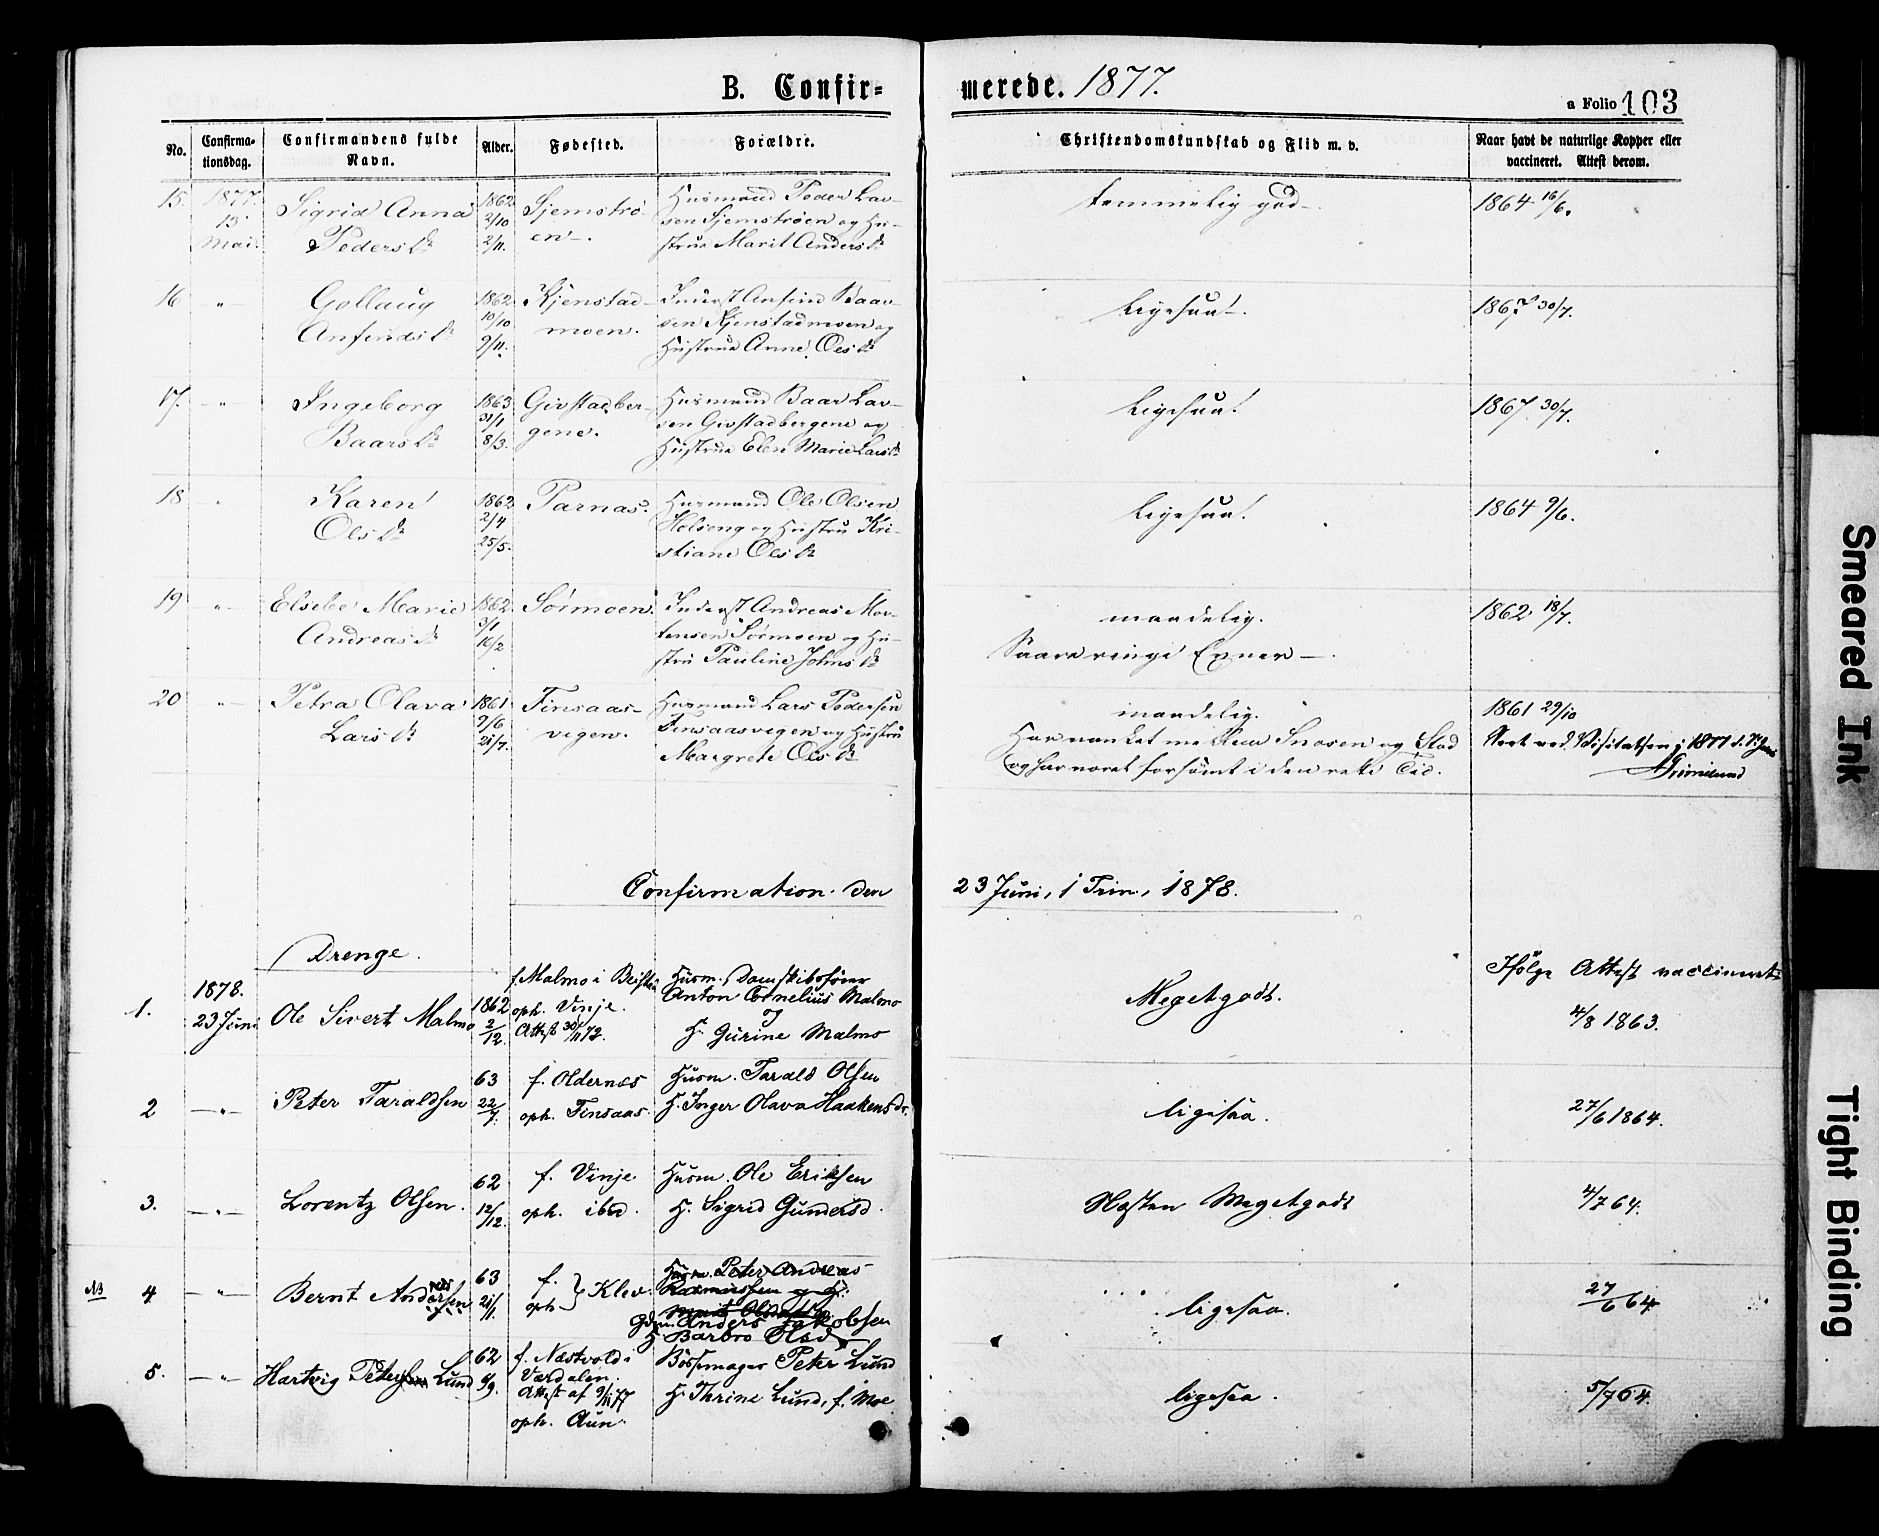 B. Confirmerede. 1877.
a Folio 103
No.
Confirmationsdag.
Confirmandens fulde Navn.
Alder.
Fødested.
Forældre.
Christendomskundskab og Flid m. v.
Naar havt de naturlige Kopper eller vaccineret. Attest derom.
15. 1877. 13 Mai.
Sigrid Anna
Pedersdr
1862 2/10 2/11.
Sjemstrøen.
Husmand Peder Larsen Sjemstrøen og Hustrue Marit Andersdr
temmelig god
1864 16/6.
16 " Gollaug
Anfindsdr
1862 10/10 9/11.
Kjenstadmoen.
Inderst Anfind Baarsen Kjenstadmoen og
Hustrue Anne Olsdr
Ligesaa.
1867 30/7.
17. " Ingeborg
Baarsdr
1863 31/1 8/3.
Givstadbergene.
Husmand Baar Larsen Givstadbergene og
Hustrue Elen Marie Larsdr
Ligesaa.
1867 30/7.
18 " Karen
Olsdr
1862 2/4 25/5.
Parnas.
Husmand Ole Olsen
Holseng og Hustru Kristiane Olsdr
Ligesaa.
1864 9/6.
19 " Elsebe Marie
Andreasdr
1862 3/1 16/2
Sørmoen.
Inderst Andreas Mortensen Sørmoen og Hustru Pauline Johnsdr
maadelig.
Saare ringe Evner.
1862 18/7.
20 " Petra Olava
Larsdr
1861 9/6 21/7.
Finsaasvigen.
Husmand Lars Pedersen
Finsaasvigen og Hustru
Margrete Olsdr
maadelig.
Har vanket mellem Snaasen og Stod
og har været forsømt i den rette Tid.
1861 29/10
Seet ved Visitatsen i 1877
Grimelund
Confirmation den 23 Juni, 1 Trin, 1878.
Drenge.
1. 1878. 23 Juni
Ole Sivert Malmo
1862 2/12.
f. Malmo i Beitstad
oph. Vinje.
Attest 30/11 72.
Husm. Damskibsfører
Anton Cornelius Malmo
og
H. Gurine Malmo
Megetgodt.
Ifølge Attest vaccineret
4/8 1863.
2 " Peter Taraldsen
63 22/7.
f. Oldernæs
oph. Finsaas.
Husm. Tarald Olsen
H. Inger Olava Haakensdr.
ligesaa.
27/6 1864.
3. " Lorentz Olsen.
62 12/12.
f. Vinje
oph. ibd.
Husm. Ole Eriksen
H. Sigrid Gundersd.
Næsten Megetgodt
4/7 64.
NB 4 " Bernt Andersen
63 21/1.
f. oph } Klev.
Husm. Peter Andreas
Rasmussen og H.
Marit Olsdatter
Gdm. Anders Jakobsen
H. Barbro Olsdr
ligesaa.
27/6 64
5. " Hartvig Petersen Lund
62 6/9.
f. Næstvold i
Værdalen.
Attest af 9/11 77
oph. Aun.
Bøssemager Peter Lund
H. Thrine Lund, f. Moe
ligesaa.
5/7 64.
Smeared Ink
Tight Binding